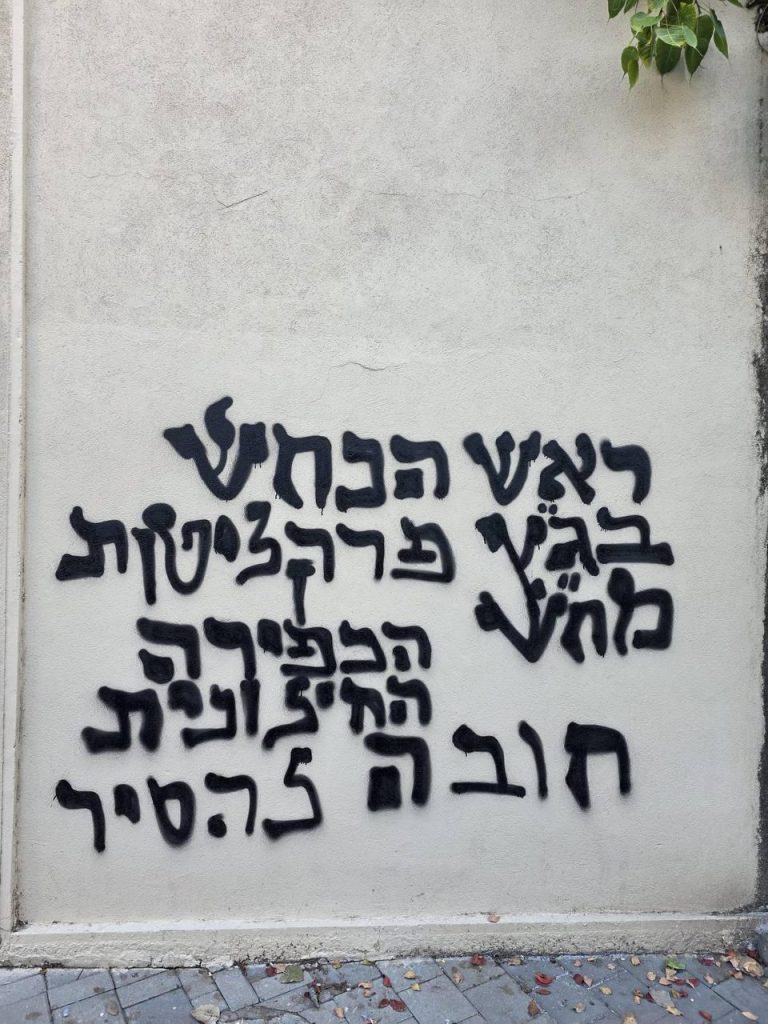 ראש הנחש
בג"ץ פרקליטות
מח"ש
הכפירה
החיצונית
חובה להסיר